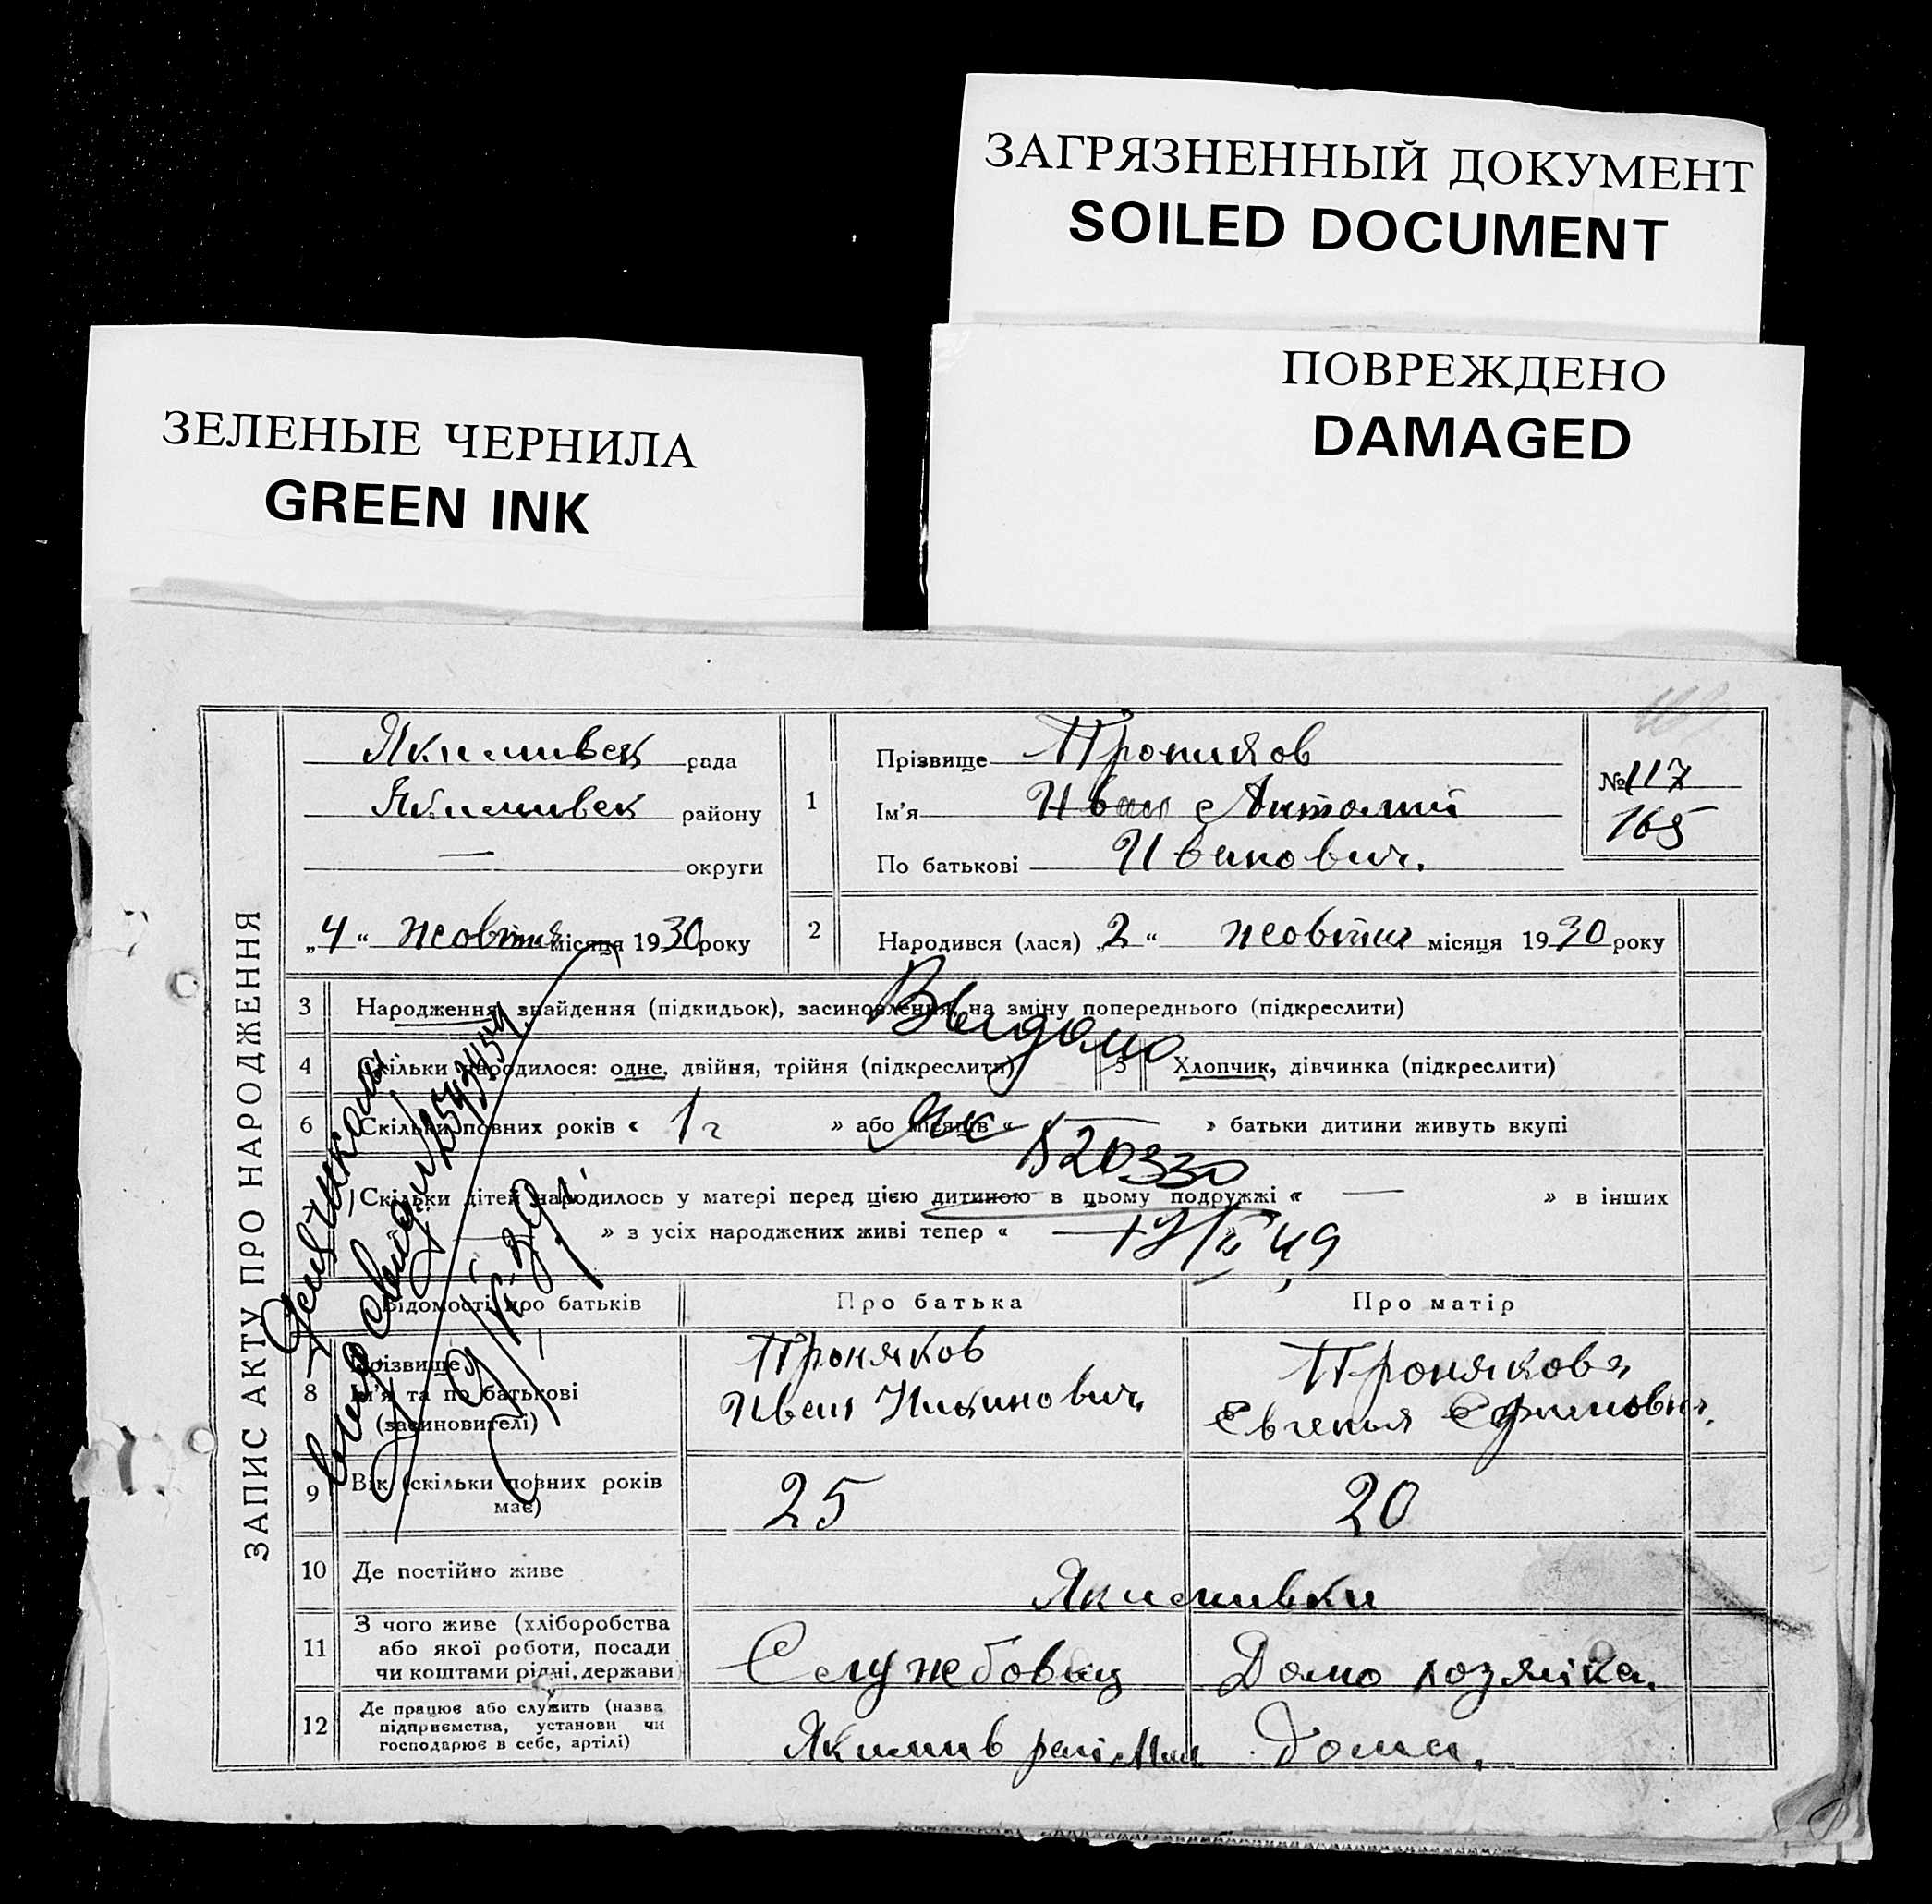 ЗАГРЯЗНЕННЫЙ ДОКУМЕНТ
SOILED DOCUMENT
ПОВРЕЖДЕНО
DAMAGED
ЗЕЛЕНЫЕ ЧЕРНИЛА
GREEN INK
ЗАПИС АКТУ ПРО НАРОДЖЕННЯ
Якимивск рада
Якимивск району
— округи
„4“ жовтня місяця 1930 року
1
Прізвище Проняков
Ім'я Иван Антолий
По батькові Иванович.
№ 117
165
2
Народився (лася) „2“ жовтня місяця 1930 року
3 Народження, знайдення (підкидьок), засиновлення, на зміну попереднього (підкреслити)
Выдано
4 Скільки народилося: одне, двійня, трійня (підкреслити)
5 Хлопчик, дівчинка (підкреслити)
6 Скільки повних років « 1 г » або місяців « — » батьки дитини живуть вкупі
520330
Скільки дітей народилось у матері перед цією дитиною в цьому подружжі « — » в інших
— » з усіх народжених живі тепер « —
49
Відомості про батьків
Про батька
Про матір
8 Прізвище,
ім'я та по батькові
(засиновителі)
Проняков
Иван
Пронякова
Евгенья Ефимовна.
9 Вік (скільки повних років
має)
25
20
10 Де постійно живе
Якимивки
11 З чого живе (хліборобства
або якої роботи, посади
чи коштами рідні, держави
Службовец
Домо хозяйка.
12 Де працює або служить (назва
підприємства, установи чи
господарює в себе, артілі)
Якимив
Дома.